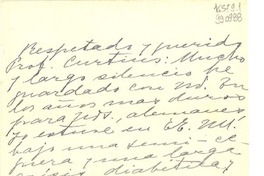 Respetado y querido
Prof. Curtius: Mucho
y largo silencio he
guardado con Ud. En
los años mas duros
para Uds, alemanes
yo estuve en EE. UU.
bajo una semi-ce
guera y una larga
crisis diabética y